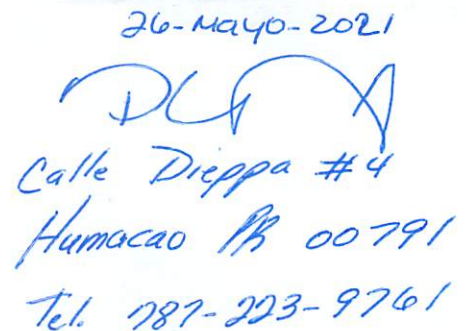 26-Mayo-2021
Calle Dieppa #4
Humacao PR 00791
Tel. 787-223-9761